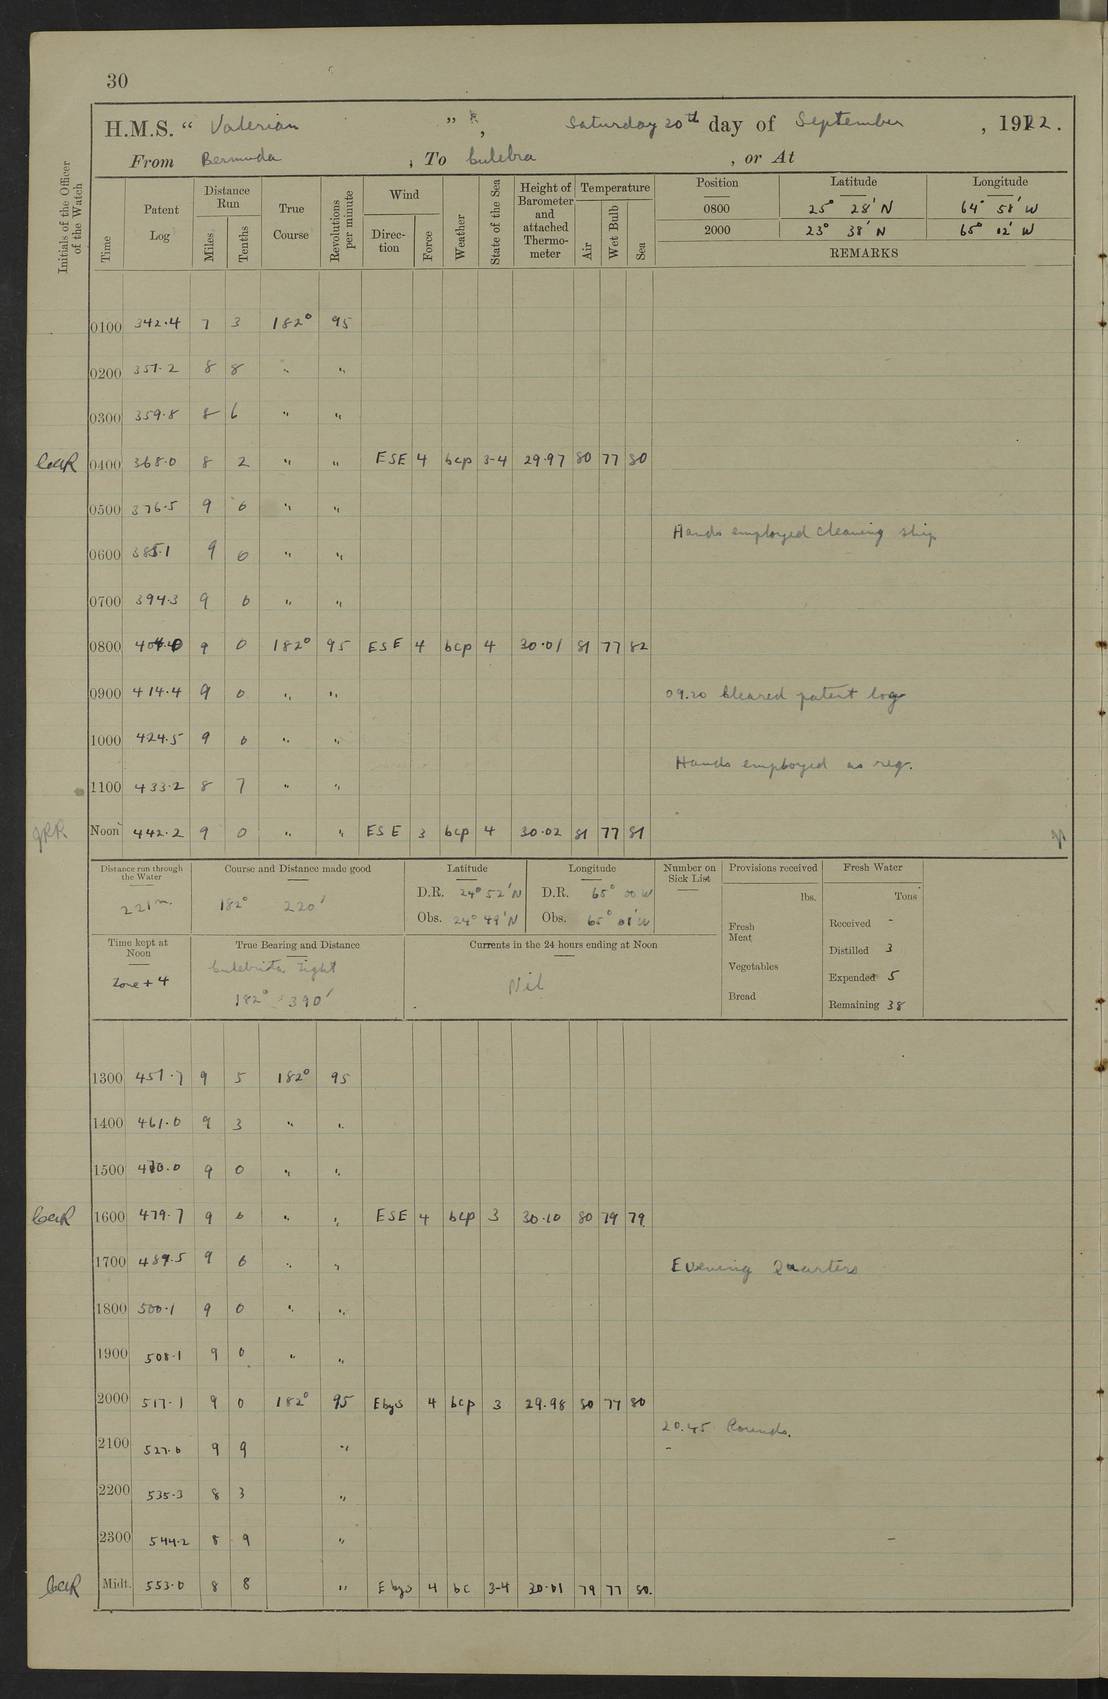 30
H.M.S. “ Valerian ” , Saturday 20th day of September , 1922.
From Bermuda , To Culebra , or At
Initials of the Officer of the Watch
Time
Patent Log
Distance Run
Miles
Tenths
True Course
Revolutions per minute
Wind
Direction
Force
Weather
State of the Sea
Height of Barometer and attached Thermometer
Temperature
Air
Wet Bulb
Sea
Position Latitude Longitude
0800 25° 28' N 64° 58' W
2000 23° 38' N 65° 02' W
REMARKS
0100 342.4 7 3 182° 95
0200 351.2 8 8 " "
0300 359.8 8 6 " "
0400 368.0 8 2 " " ESE 4 bcp 3-4 29.97 80 77 80
0500 376.5 9 0 " "
Hands employed cleaning ship
0600 385.1 9 0 " "
0700 394.3 9 0 " "
0800 404.0 9 0 182° 95 ESE 4 bcp 4 30.01 81 77 82
0900 414.4 9 0 " " 09.20 Cleared patent log
1000 424.5 9 0 " "
Hands employed as req.
1100 433.2 8 7 " "
JRR Noon 442.2 9 0 " " ESE 3 bcp 4 30.02 81 77 81
Distance run through the Water
221 m.
Course and Distance made good
182° 220'
Latitude
D.R. 24° 52' N
Obs. 24° 49' N
Longitude
D.R. 65° 00 W
Obs. 65° 01' W
Number on Sick List
Provisions received
lbs.
Fresh Meat
Vegetables
Bread
Fresh Water
Tons
Received -
Distilled 3
Expended 5
Remaining 38
Time kept at Noon
Zone + 4
True Bearing and Distance
Culebrita Light
182° 390'
Currents in the 24 hours ending at Noon
Nil
1300 451.7 9 5 182° 95
1400 461.0 9 3 " "
1500 470.0 9 0 " "
1600 479.7 9 6 " " ESE 4 bcp 3 30.10 80 79 79
1700 489.5 9 6 " " Evening Quarters
1800 500.1 9 0 " "
1900 508.1 9 0 " "
2000 517.1 9 0 182° 95 E by S 4 bcp 3 29.98 80 77 80
20.45 Rounds.
2100 527.0 9 9 "
2200 535.3 8 3 "
2300 544.2 8 9 "
Midt. 553.0 8 8 " E by S 4 bc 3-4 30.01 79 77 80.